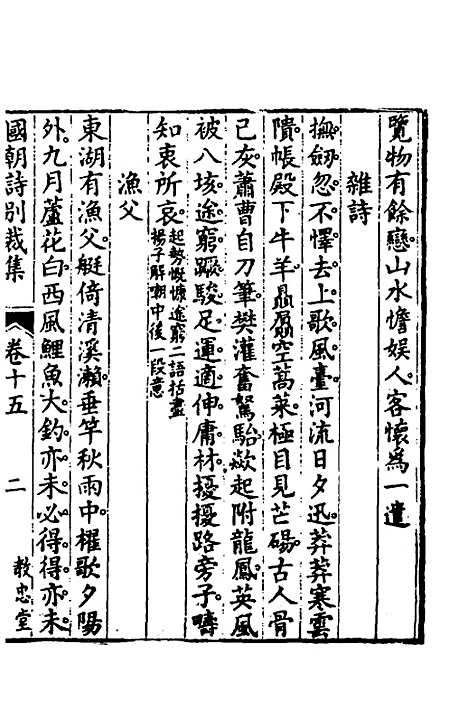 覽物有餘戀山水憺娱人客懷為一遣
雜詩
撫劒忽不懌去上歌風臺河流日夕迅莽莽寒雲
隤帳殿下牛羊贔屭空蒿萊極目見芒碭古人骨
已灰蕭曹自刀筆樊灌奮駑駘歘起附龍鳳英風
被八垓途窮蹶駿足運適伸庸材擾擾路旁子疇
知衷所哀起勢慨慷途窮二語括盡
揚子解嘲中後一段意
漁父
東湖有漁父艇倚清溪瀨垂竿秋雨中櫂歌夕陽
外九月蘆花白西風鯉魚大釣亦未必得得亦未
國朝詩別裁集 卷十五 二 教忠堂